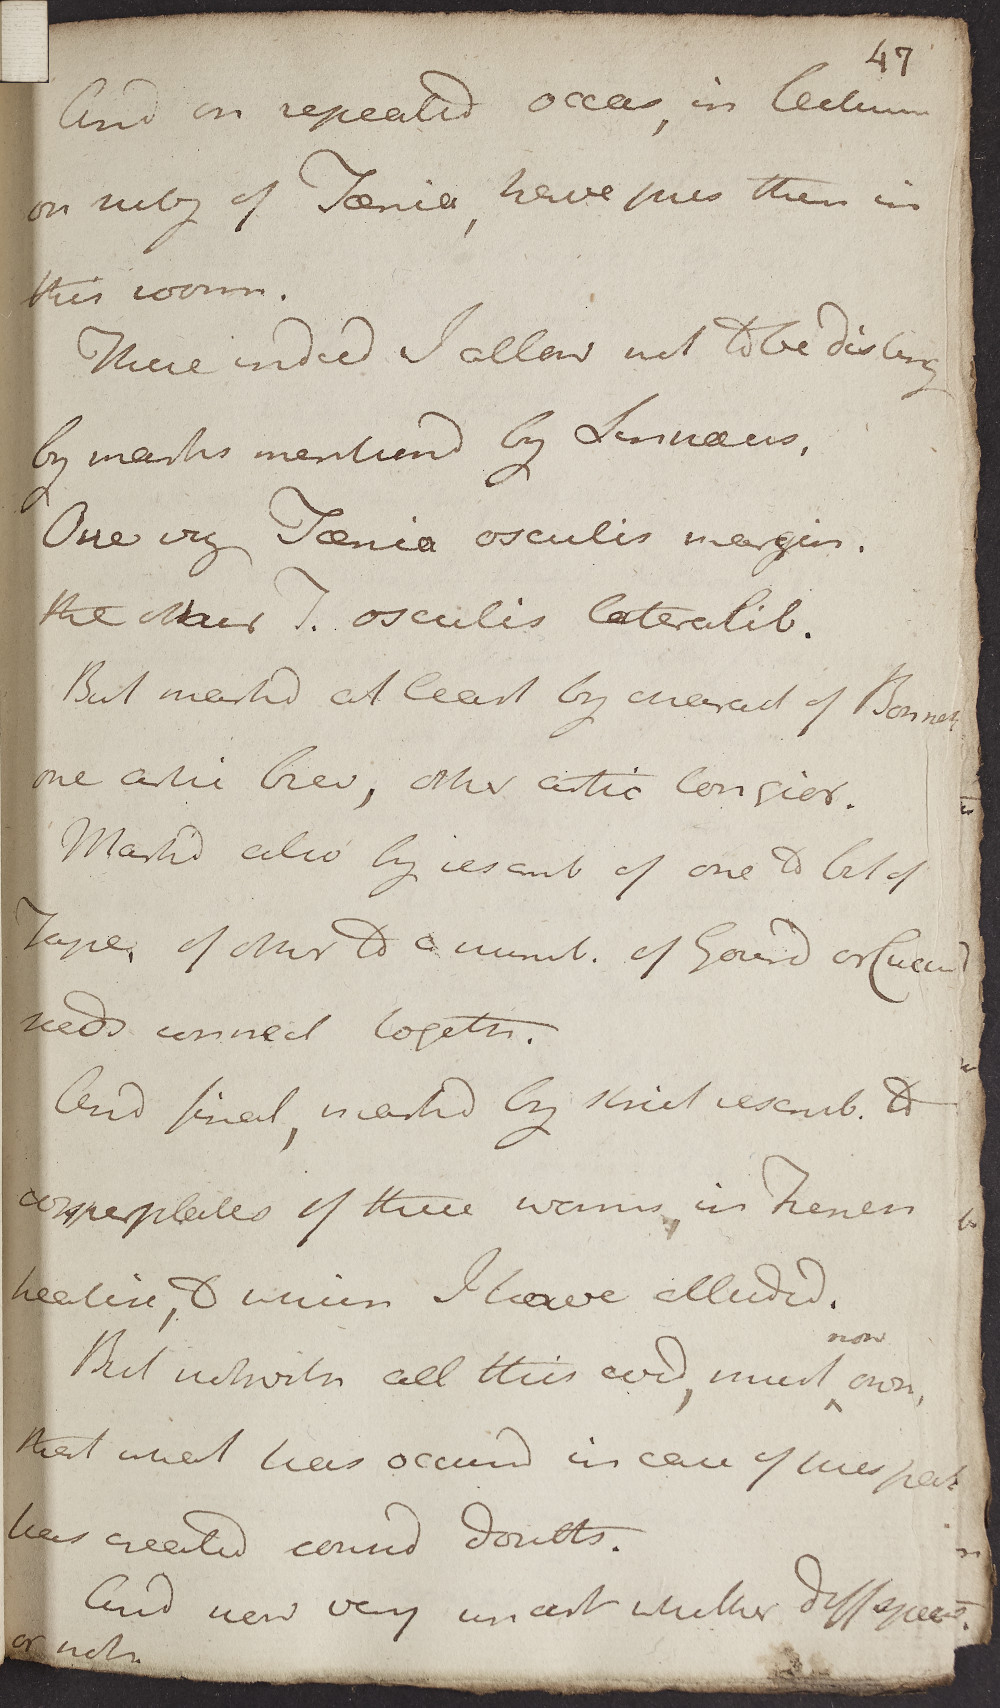 47
And on repeated occas, in lectures
on subj of Tænia, have pres them in
this room.
These indeed I allow not to be disting
by marks mentiond by Linnæus,
One viz Tænia osculis margin.
the other T. osculis lateralib.
But markd at least by charact of Bonnet
one artic brev, other artic longior.
Markd also by resemb of one to bit of
Tape, of other to a numb. of Gourd or Cucum
seeds connect togethr.
And final, markd by strict resemb. to
copperplates of these worms, in
to which I have alluded.
But notwith all this evid, must now own,
that what has occurd in case of pres pat
has created consid doubts.
And now very uncert whether diff species.
or not.